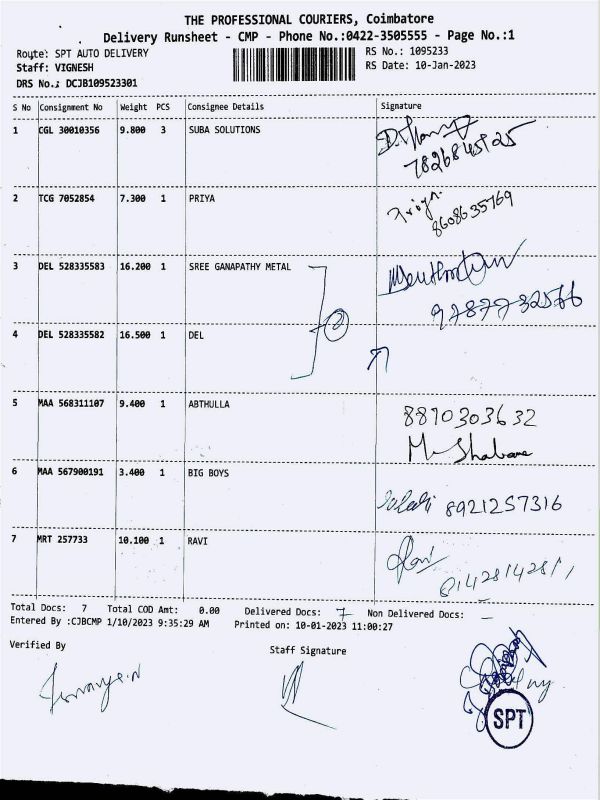 THE PROFESSIONAL COURIERS, Coimbatore
Delivery Runsheet - CMP - Phone No.:0422-3505555 - Page No.:1
Route: SPT AUTO DELIVERY RS No.: 1095233
Staff: VIGNESH RS Date: 10-Jan-2023
DRS No.: DCJB109523301
S No Consignment No Weight PCS Consignee Details Signature
1 CGL 30010356 9.800 3 SUBA SOLUTIONS
7826845925
2 TCG 7052854 7.300 1 PRIYA Priya
8608635769
3 DEL 528335583 16.200 1 SREE GANAPATHY METAL
9787732566
2
4 DEL 528335582 16.500 1 DEL
5 MAA 568311107 9.400 1 ABTHULLA 8810303632
M Shabana
6 MAA 567900191 3.400 1 BIG BOYS 8921257316
7 MRT 257733 10.100 1 RAVI Ravi
Total Docs: 7 Total COD Amt: 0.00 Delivered Docs: 7 Non Delivered Docs: -
Entered By :CJBCMP 1/10/2023 9:35:29 AM Printed on: 10-01-2023 11:00:27
Verified By Staff Signature
SPT